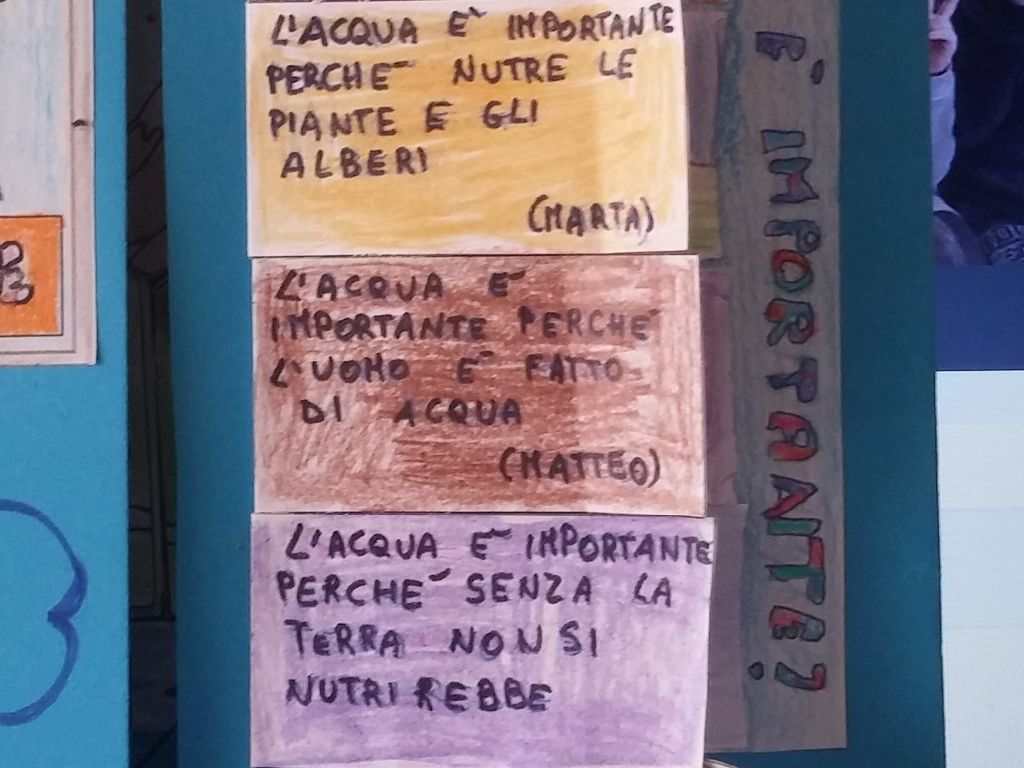 L'ACQUA E' IMPORTANTE
PERCHE' NUTRE LE
PIANTE E GLI
ALBERI
(MARTA)
L'ACQUA E'
IMPORTANTE PERCHE'
L'UOMO E' FATTO
DI ACQUA
(MATTEO)
L'ACQUA E' IMPORTANTE
PERCHE' SENZA LA
TERRA NON SI
NUTRIREBBE
È IMPORTANTE?